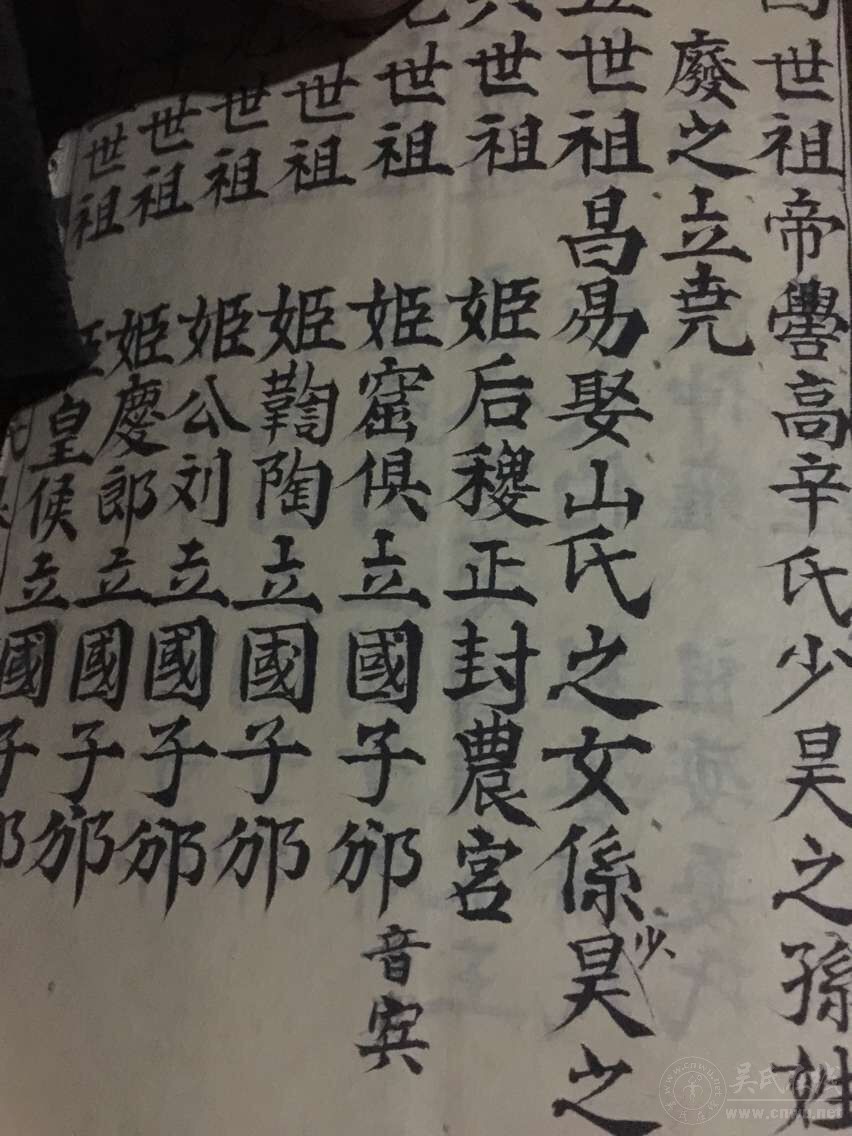 世祖帝嚳高辛氏少昊之孫姓
廢之立堯
世祖昌昜娶山氏之女係少昊之
世祖姬后稷正封農官
世祖姬窋俱立國子邠音宾
世祖姬鞫陶立國子邠
世祖姬公刘立國子邠
世祖姬慶郎立國子邠
世祖皇侯立國子邠
www.cnwu.net